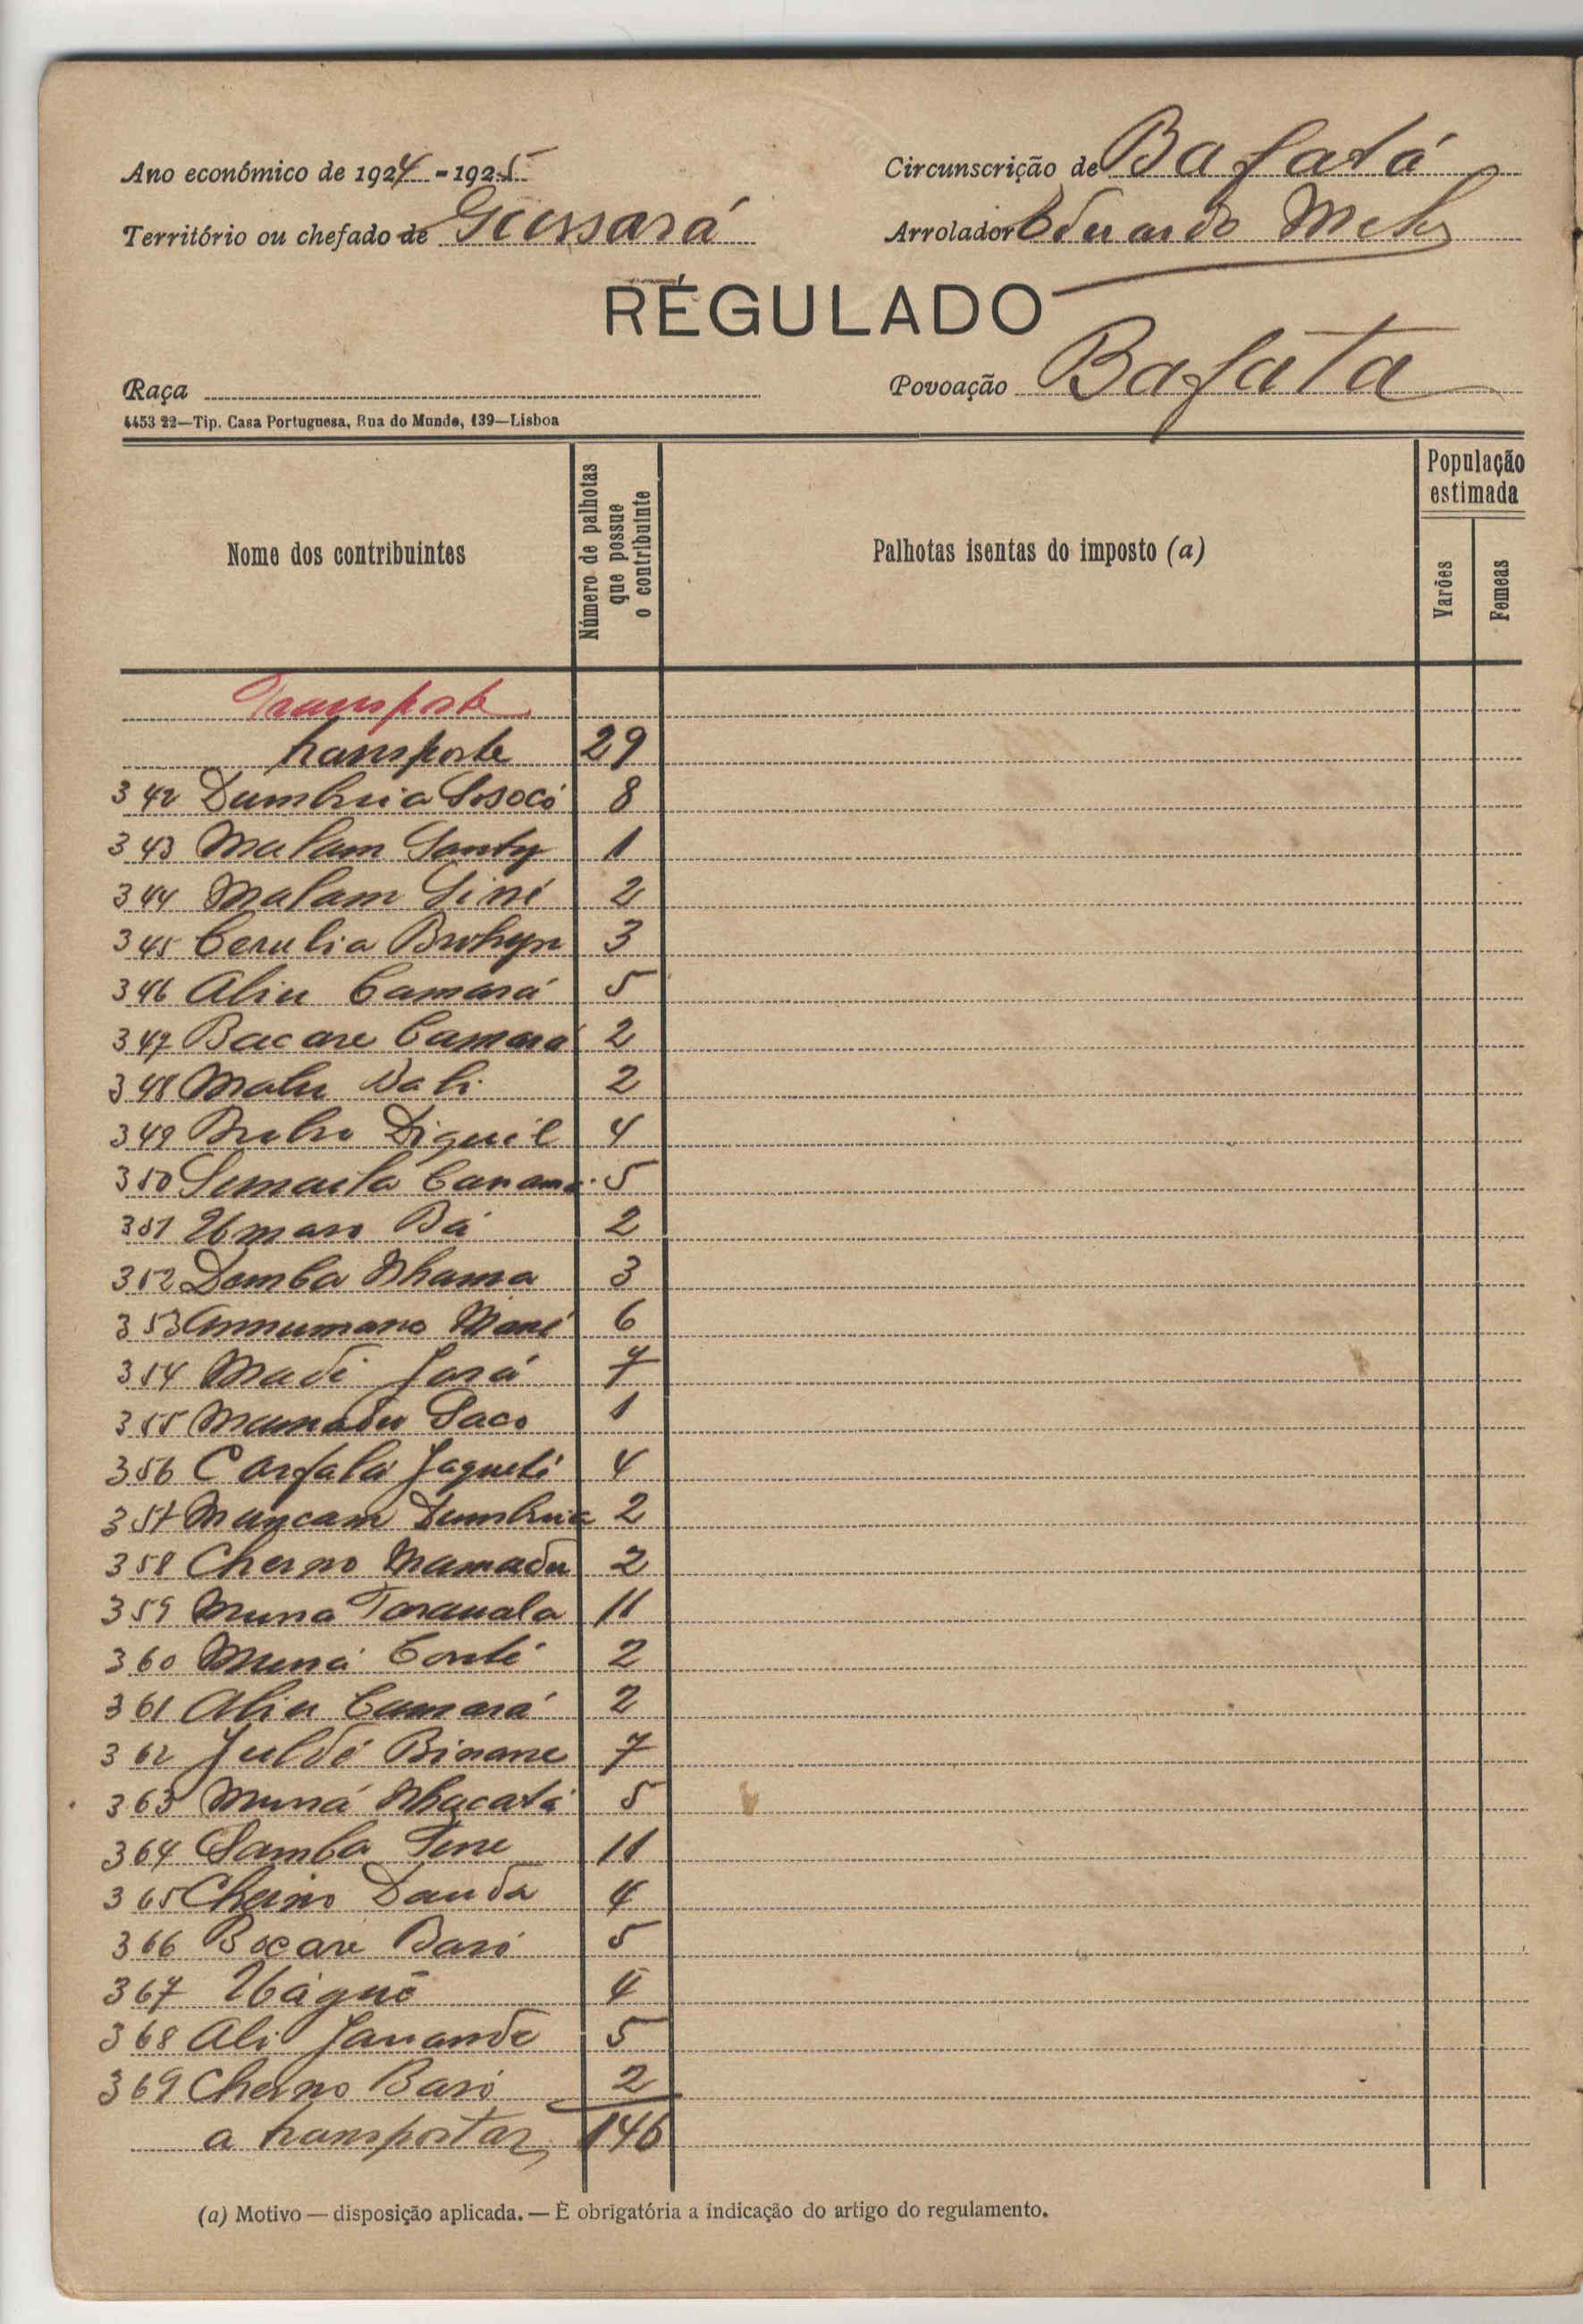 Ano económico de 1924-1925
Circunscrição de Bafatá
Território ou chefado de Gussará
Arrolador Eduardo
RÉGULADO
Raça
Povoação Bafata
4453 22—Tip. Casa Portuguesa, Rua do Mundo, 139—Lisboa
Nome dos contribuintes
Número de palhotas que possue o contribuinte
Palhotas isentas do imposto (a)
População estimada
Varões
Femeas
Transporte
transporte 29
342 Dumbuia Sosocó 8
343 Malam Santy 1
344 Malam Sini 2
345 3
346 Aliu Camará 5
347 Bacare Camará 2
348 Malu Dali 2
349 4
350 5
351 Umaro Bá 2
352 Demba Nhama 3
353 Mané 6
354 Madi Jará 7
355 Mamadu Saco 1
356 4
357 Mancam Dumbuia 2
358 Cherno Mamadu 2
359 Muna Tarauala 11
360 Muná Conté 2
361 Aliu Camará 2
362 Juldé Binane 7
363 Muná Nhacatá 5
364 Samba Sene 11
365 Cherno Dauda 4
366 Bocare Baró 5
367 4
368 Ali Jauande 5
369 Cherno Baró 2
a transportar 146
(a) Motivo — disposição aplicada. — É obrigatória a indicação do artigo do regulamento.